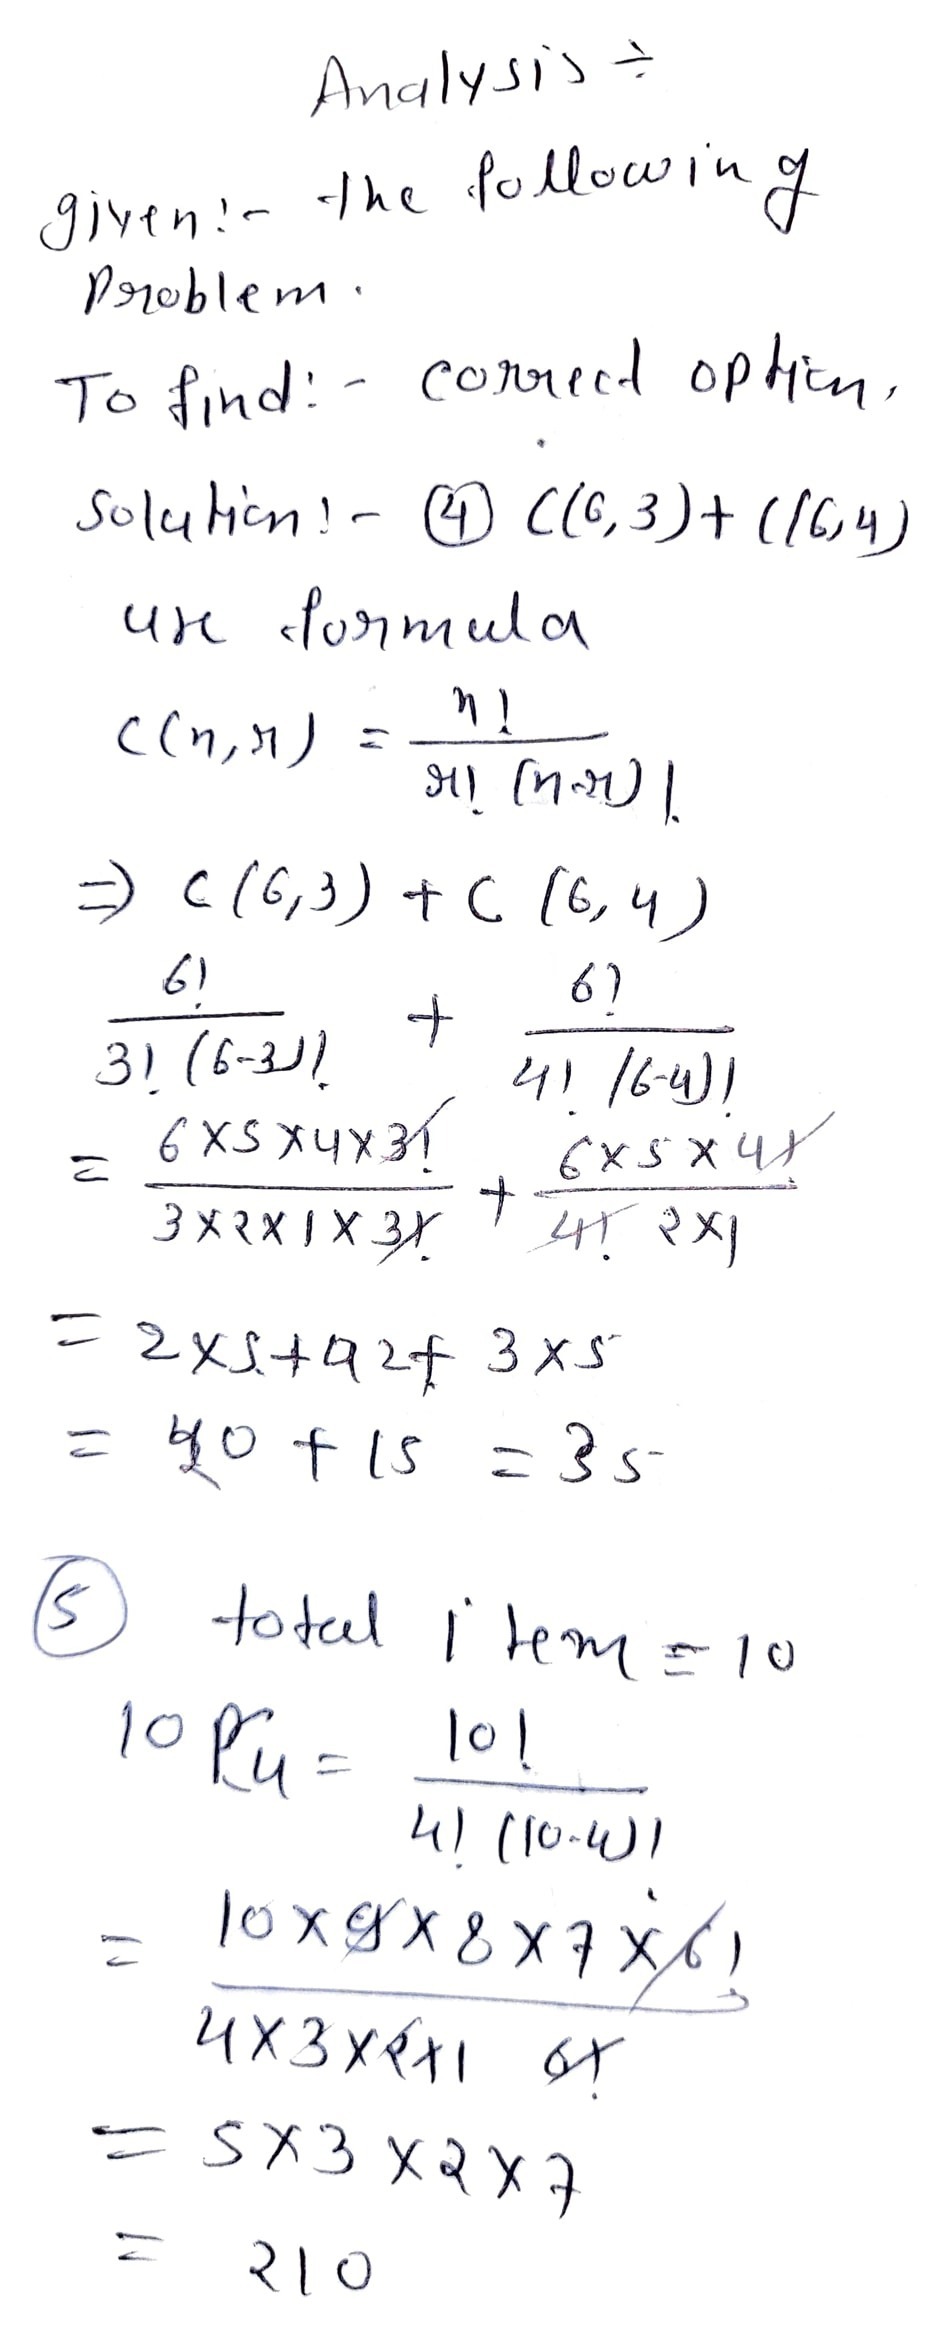 Analysis ÷
given:- the following
Problem.
To find:- correct option.
Solution:- ④ C(6,3)+C(6,4)
use formula
C(n,r) = n! / r! (n-r)!
⇒ C(6,3) + C(6,4)
6! / 3! (6-3)! + 6! / 4! (6-4)!
= 6×5×4×3! / 3×2×1×3! + 6×5×4! / 4! 2×1
= 2×5+ 2+ 3×5
= 20 + 15 = 35
⑤ total item = 10
10 P4 = 10! / 4! (10-4)!
= 10×9×8×7×6! / 4×3×2×1 6!
= 5×3×2×7
= 210